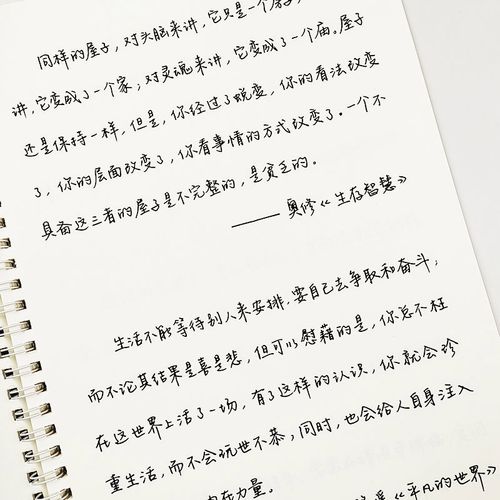 同样的屋子，对头脑来讲，它只是一个房子，
讲，它变成了一个家，对灵魂来讲，它变成了一个庙。屋子
还是保持一样，但是，你经过了蜕变，你的看法改变
了，你的层面改变了，你看事情的方式改变了。一个不
具备这三者的屋子是不完整的，是贫乏的。
——奥修《生存智慧》
生活不能等待别人来安排，要自己去争取和奋斗；
而不论其结果是喜是悲，但可以慰藉的是，你总不枉
在这世界上活了一场，有了这样的认识，你就会珍
重生活，而不会玩世不恭，同时，也会给人自身注入
内在力量。
《平凡的世界》